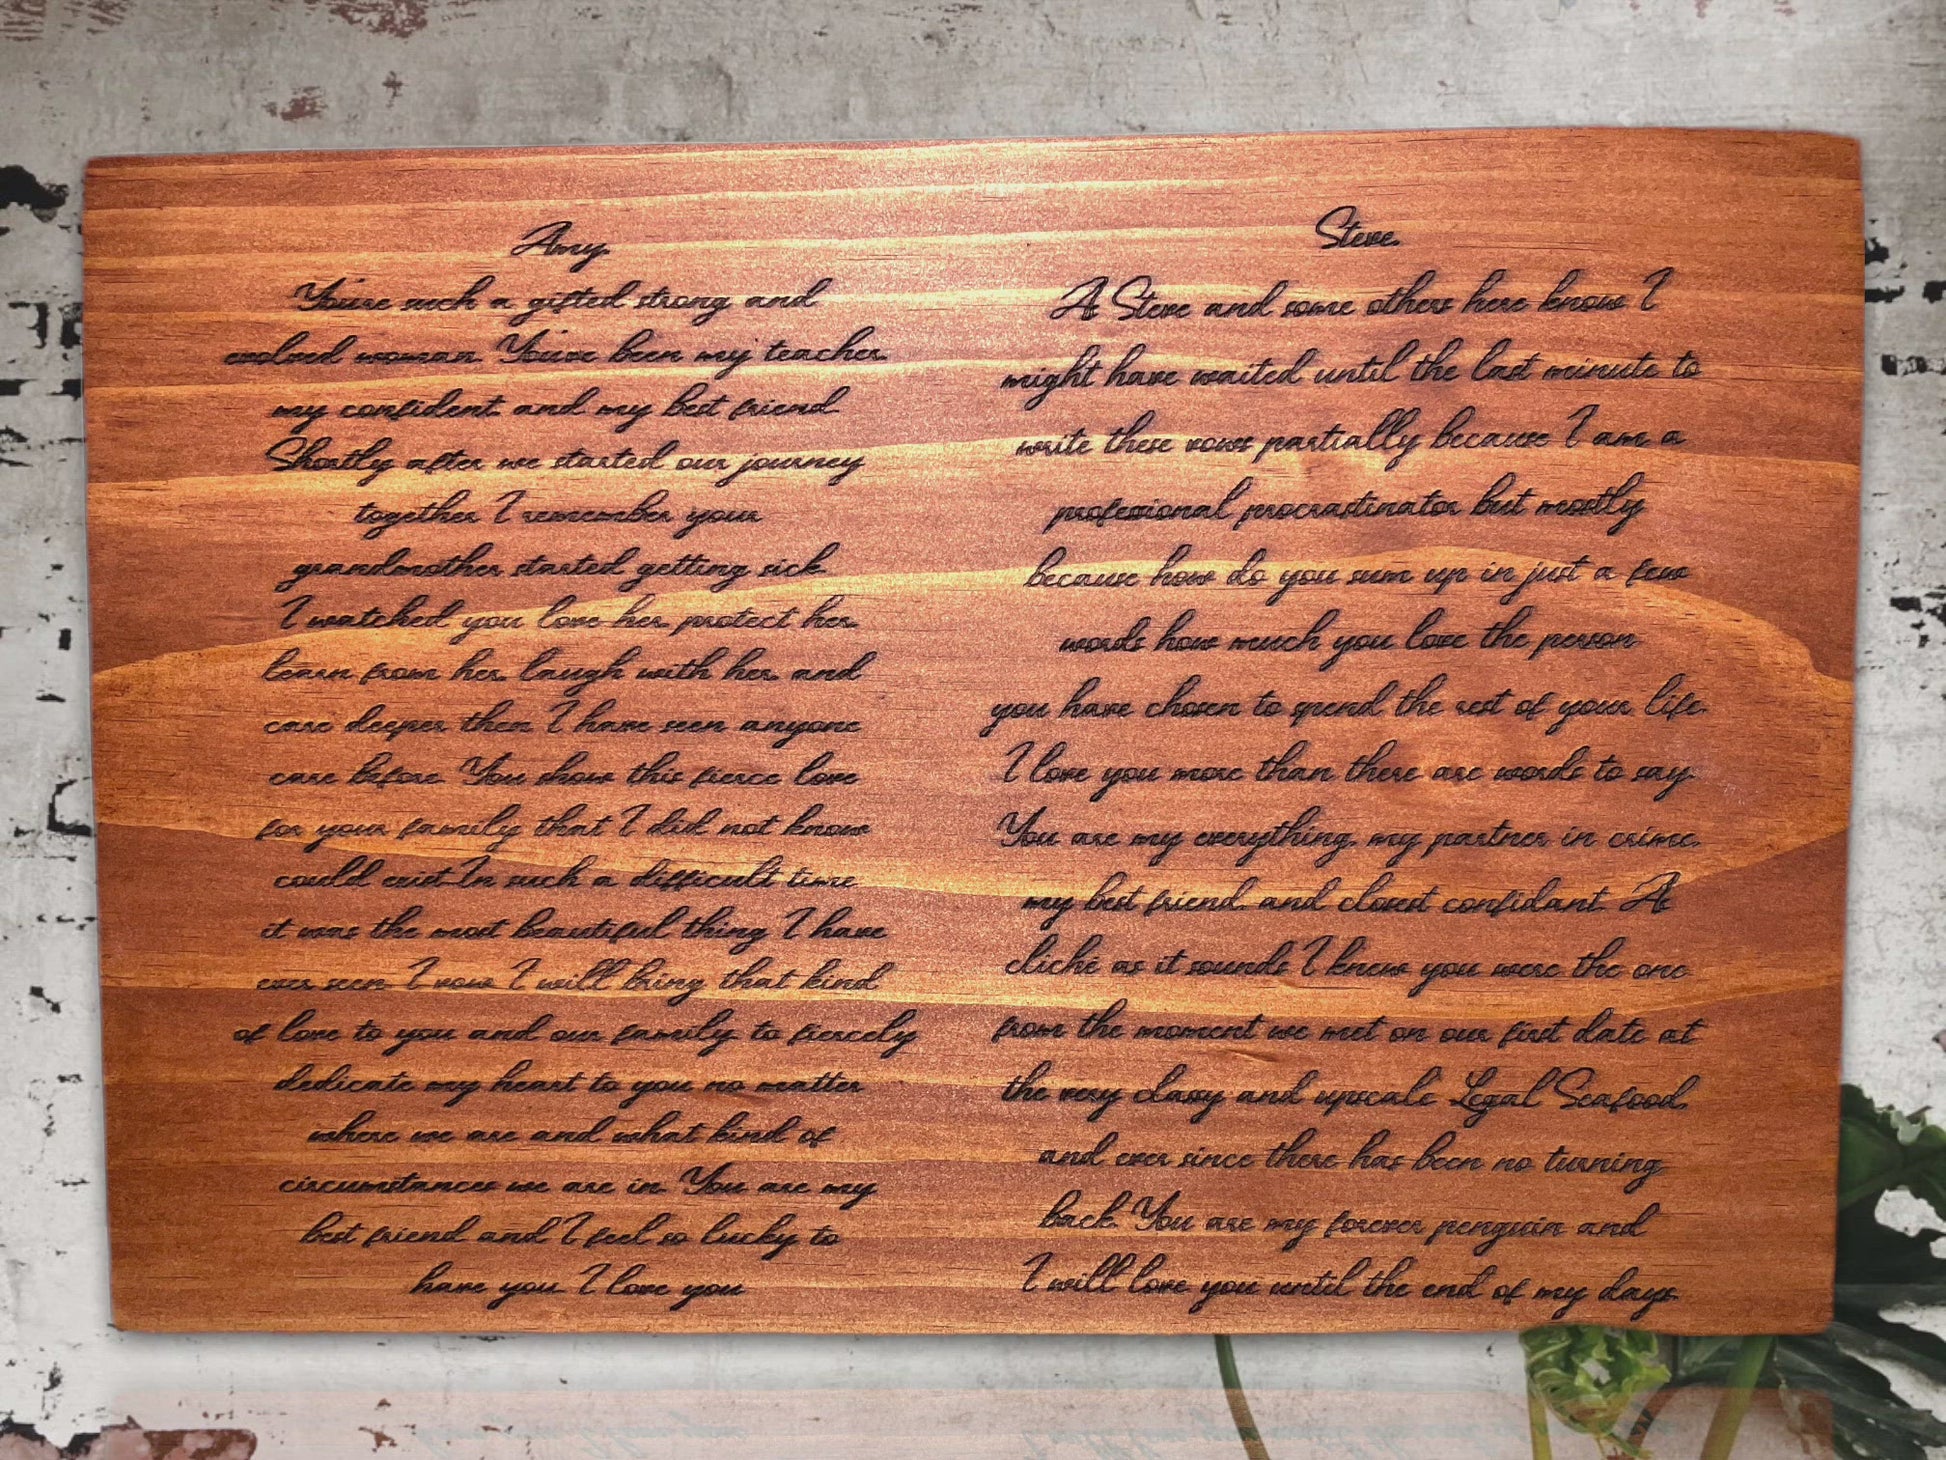 Amy
You're such a gifted strong and
evolved woman. You've been my teacher,
my confident and my best friend.
Shortly after we started our journey
together I remember your
grandmother started getting sick.
I watched you love her, protect her,
learn from her, laugh with her, and
care deeper then I have seen anyone
care before. You show this fierce love
for your family that I did not know
could exist. In such a difficult time
it was the most beautiful thing I have
ever seen. I vow I will bring that kind
of love to you and our family, to fiercely
dedicate my heart to you no matter
where we are and what kind of
circumstances we are in. You are my
best friend and I feel so lucky to
have you. I love you
Steve
As Steve and some others here know I
might have waited until the last minute to
write these vows partially because I am a
professional procrastinator but mostly
because how do you sum up in just a few
words how much you love the person
you have chosen to spend the rest of your life.
I love you more than there are words to say.
You are my everything, my partner in crime,
my best friend, and closest confidant. As
cliché as it sounds I knew you were the one
from the moment we met on our first date at
the very classy and upscale Legal Seafood,
and ever since there has been no turning
back. You are my forever penguin and
I will love you until the end of my days.